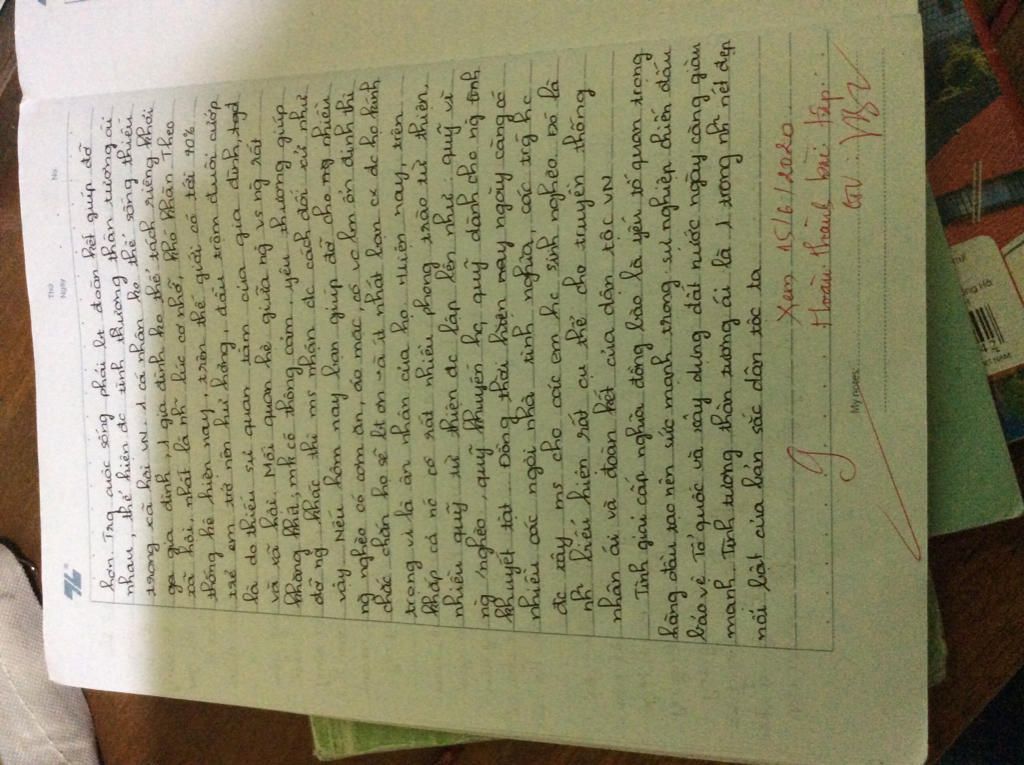 Thứ
Ngày
No.
hơn. Trg cuộc sống phải bt đoàn kết giúp đỡ
nhau, thể hiện đc tình thương thân tương ái
trong xã hội VN. 1 cá nhân ko thể sống thiếu
gia đình, 1 gia đình ko thể tách riêng khỏi
xã hội, nhất là nh~ lúc cơ nhỡ, khó khăn. Theo
thống kê hiện nay, trên thế giới có tới 40%
trẻ em trở nên hư hỏng, đầu trộm đuôi cướp
là do thiếu sự quan tâm của gia đình,
và xã hội. Mối quan hệ giữa ng vs ng rất
khăng khít, mk có thông cảm, yêu thương giúp
đỡ ng khác thì ms nhận đc cách đối xử như
vậy. Nếu hôm nay bạn giúp đỡ cho ng nhiều
ng nghèo có cơm ăn, áo mặc, có v/c lm ổn định thì
chắc chắn họ sẽ bt ơn và ít nhất bạn cx đc họ kính
trọng vì là ân nhân của họ. Hiện nay, trên
khắp cả nc có rất nhiều phong trào từ thiện,
nhiều quỹ từ thiện đc lập lên như: quỹ vì
ng nghèo, quỹ khuyến học, quỹ dành cho ng
khuyết tật. Đồng thời hiện nay ngày càng có
nhiều các ngôi nhà tình nghĩa, các trg h.c
đc xây ms cho các em hc sinh nghèo. Đó là
nh~ biểu hiện rất cụ thể cho truyền thống
nhân ái và đoàn kết của dân tộc VN
Tình giai cấp nghĩa đồng bào là yếu tố quan trọng
hàng đầu tạo nên sức mạnh trong sự nghiệp chiến đấu
bảo vệ Tổ quốc và xây dựng đất nước ngày càng giàu
mạnh. Tình tương thân tương ái là 1 trong nh~ nét đẹp
nổi bật của bản sắc dân tộc ta
Xem 15/6/2020
Hoàn thành bài tập.
GV:
My notes: